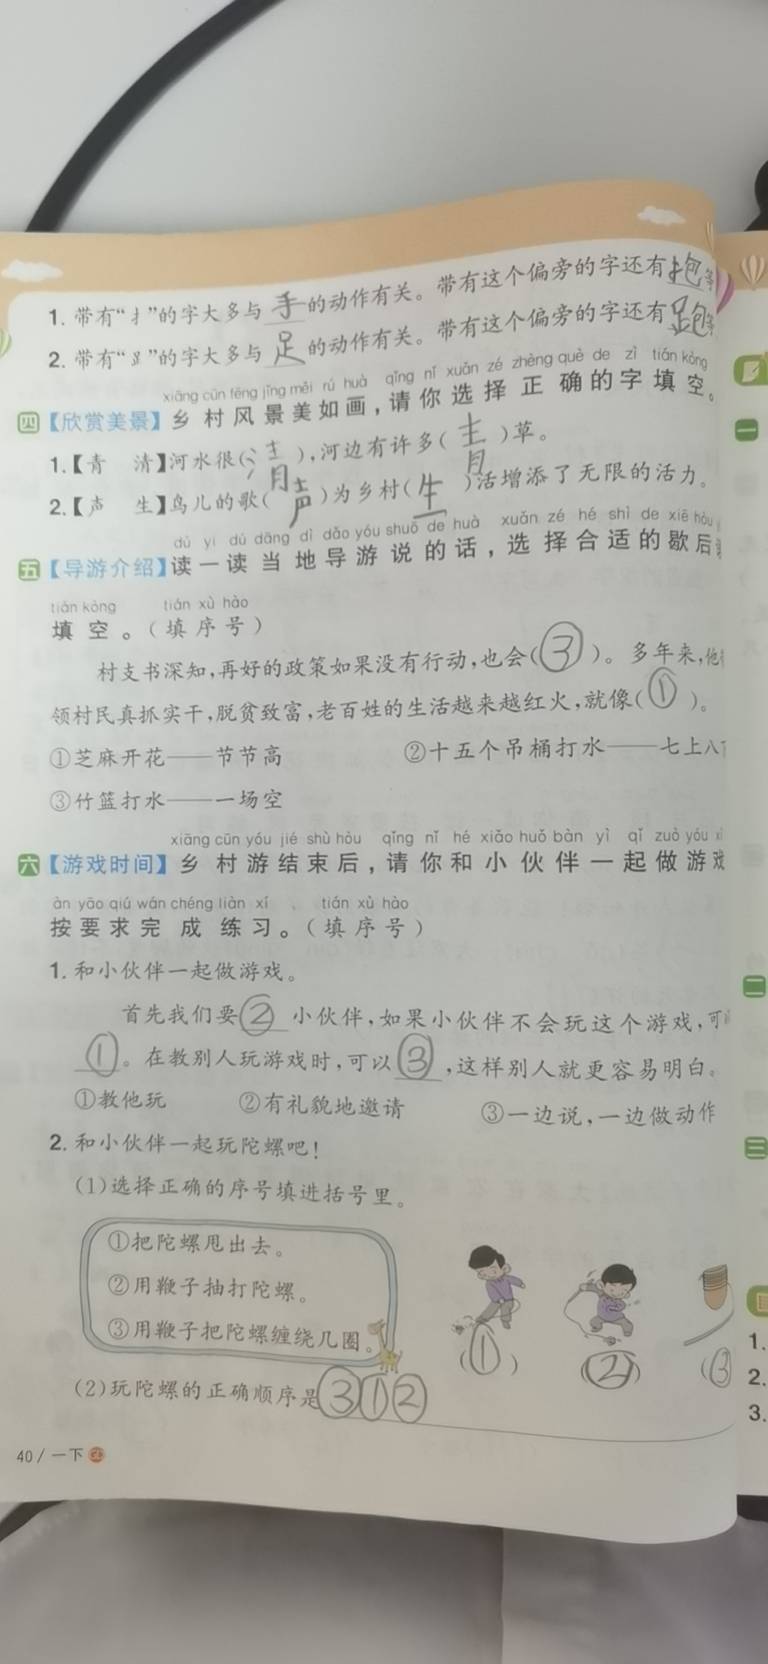 1. 带有“扌”的字大多与 手 的动作有关。带有这个偏旁的字还有 抱 等
2. 带有“⻊”的字大多与 足 的动作有关。带有这个偏旁的字还有 跑 等
xiāng cūn fēng jǐng měi rú huà qǐng nǐ xuǎn zé zhèng què de zì tián kòng
四【欣赏美景】乡村风景美如画，请你选择正确的字填空。
1.【青 清】河水很(清),河边有许多(青)草。
2.【声 生】鸟儿的歌(声)为乡村(生)活增添了无限的活力。
dú yi dú dāng dì dǎo yóu shuō de huà xuǎn zé hé shì de xiē hòu
五【导游介绍】读一读当地导游说的话，选择合适的歇后
tián kòng tián xù hào
填空。(填序号)
村支书深知,再好的政策如果没有行动,也会(③)。多年来,他
领村民真抓实干,脱贫致富,老百姓的生活越来越红火,就像(①)。
①芝麻开花——节节高 ②十五个吊桶打水——七上八
③竹篮打水——一场空
xiāng cūn yóu jié shù hòu qǐng nǐ hé xiǎo huǒ bàn yì qǐ zuò yóu xì
六【游戏时间】乡村游结束后，请你和小伙伴一起做游戏
àn yāo qiú wán chéng liàn xí tián xù hào
按要求完成练习。(填序号)
1. 和小伙伴一起做游戏。
首先我们要 ② 小伙伴,如果小伙伴不会玩这个游戏,可
①。在教别人玩游戏时,可以 ③ ,这样别人就更容易明白。
①教他玩 ②有礼貌地邀请 ③一边说,一边做动作
2. 和小伙伴一起玩陀螺吧!
(1)选择正确的序号填进括号里。
①把陀螺甩出去。
②用鞭子抽打陀螺。
③用鞭子把陀螺缠绕几圈。
(①) (②) (③
(2)玩陀螺的正确顺序是 ③①②
40 / 一下
一
二
三
1.
2.
3.